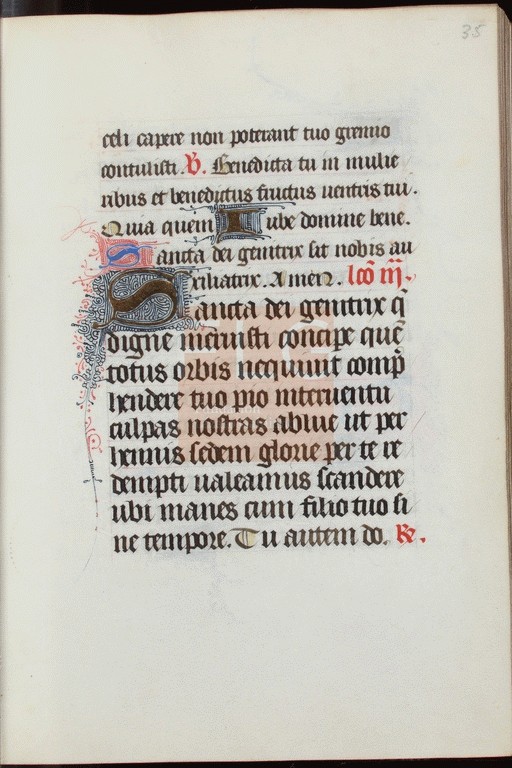 35
celi capere non poterant tuo gremio
contulisti. V. Benedicta tu in mulie
ribus et benedictus fructus uentris tui.
Quia quem Iube domine bene.
Sancta dei genitrix sit nobis au
xiliatrix. Amen. lcō iij.
Sancta dei genitrix q̄
digne meruisti concipe quē
totus orbis nequiuit comp̄
hendere tuo pio interuentu
culpas nostras ablue ut per
hennis sedem glorie per te re
dempti ualeamus scandere
ubi manes cum filio tuo si
ne tempore. Tu autem do. R.